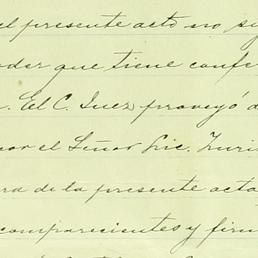 el presente acto no
oder que tiene confe
. El C. Juez proveyó d
or el Señor Lic. Zuri
ra de la presente acta
comparecientes y firm